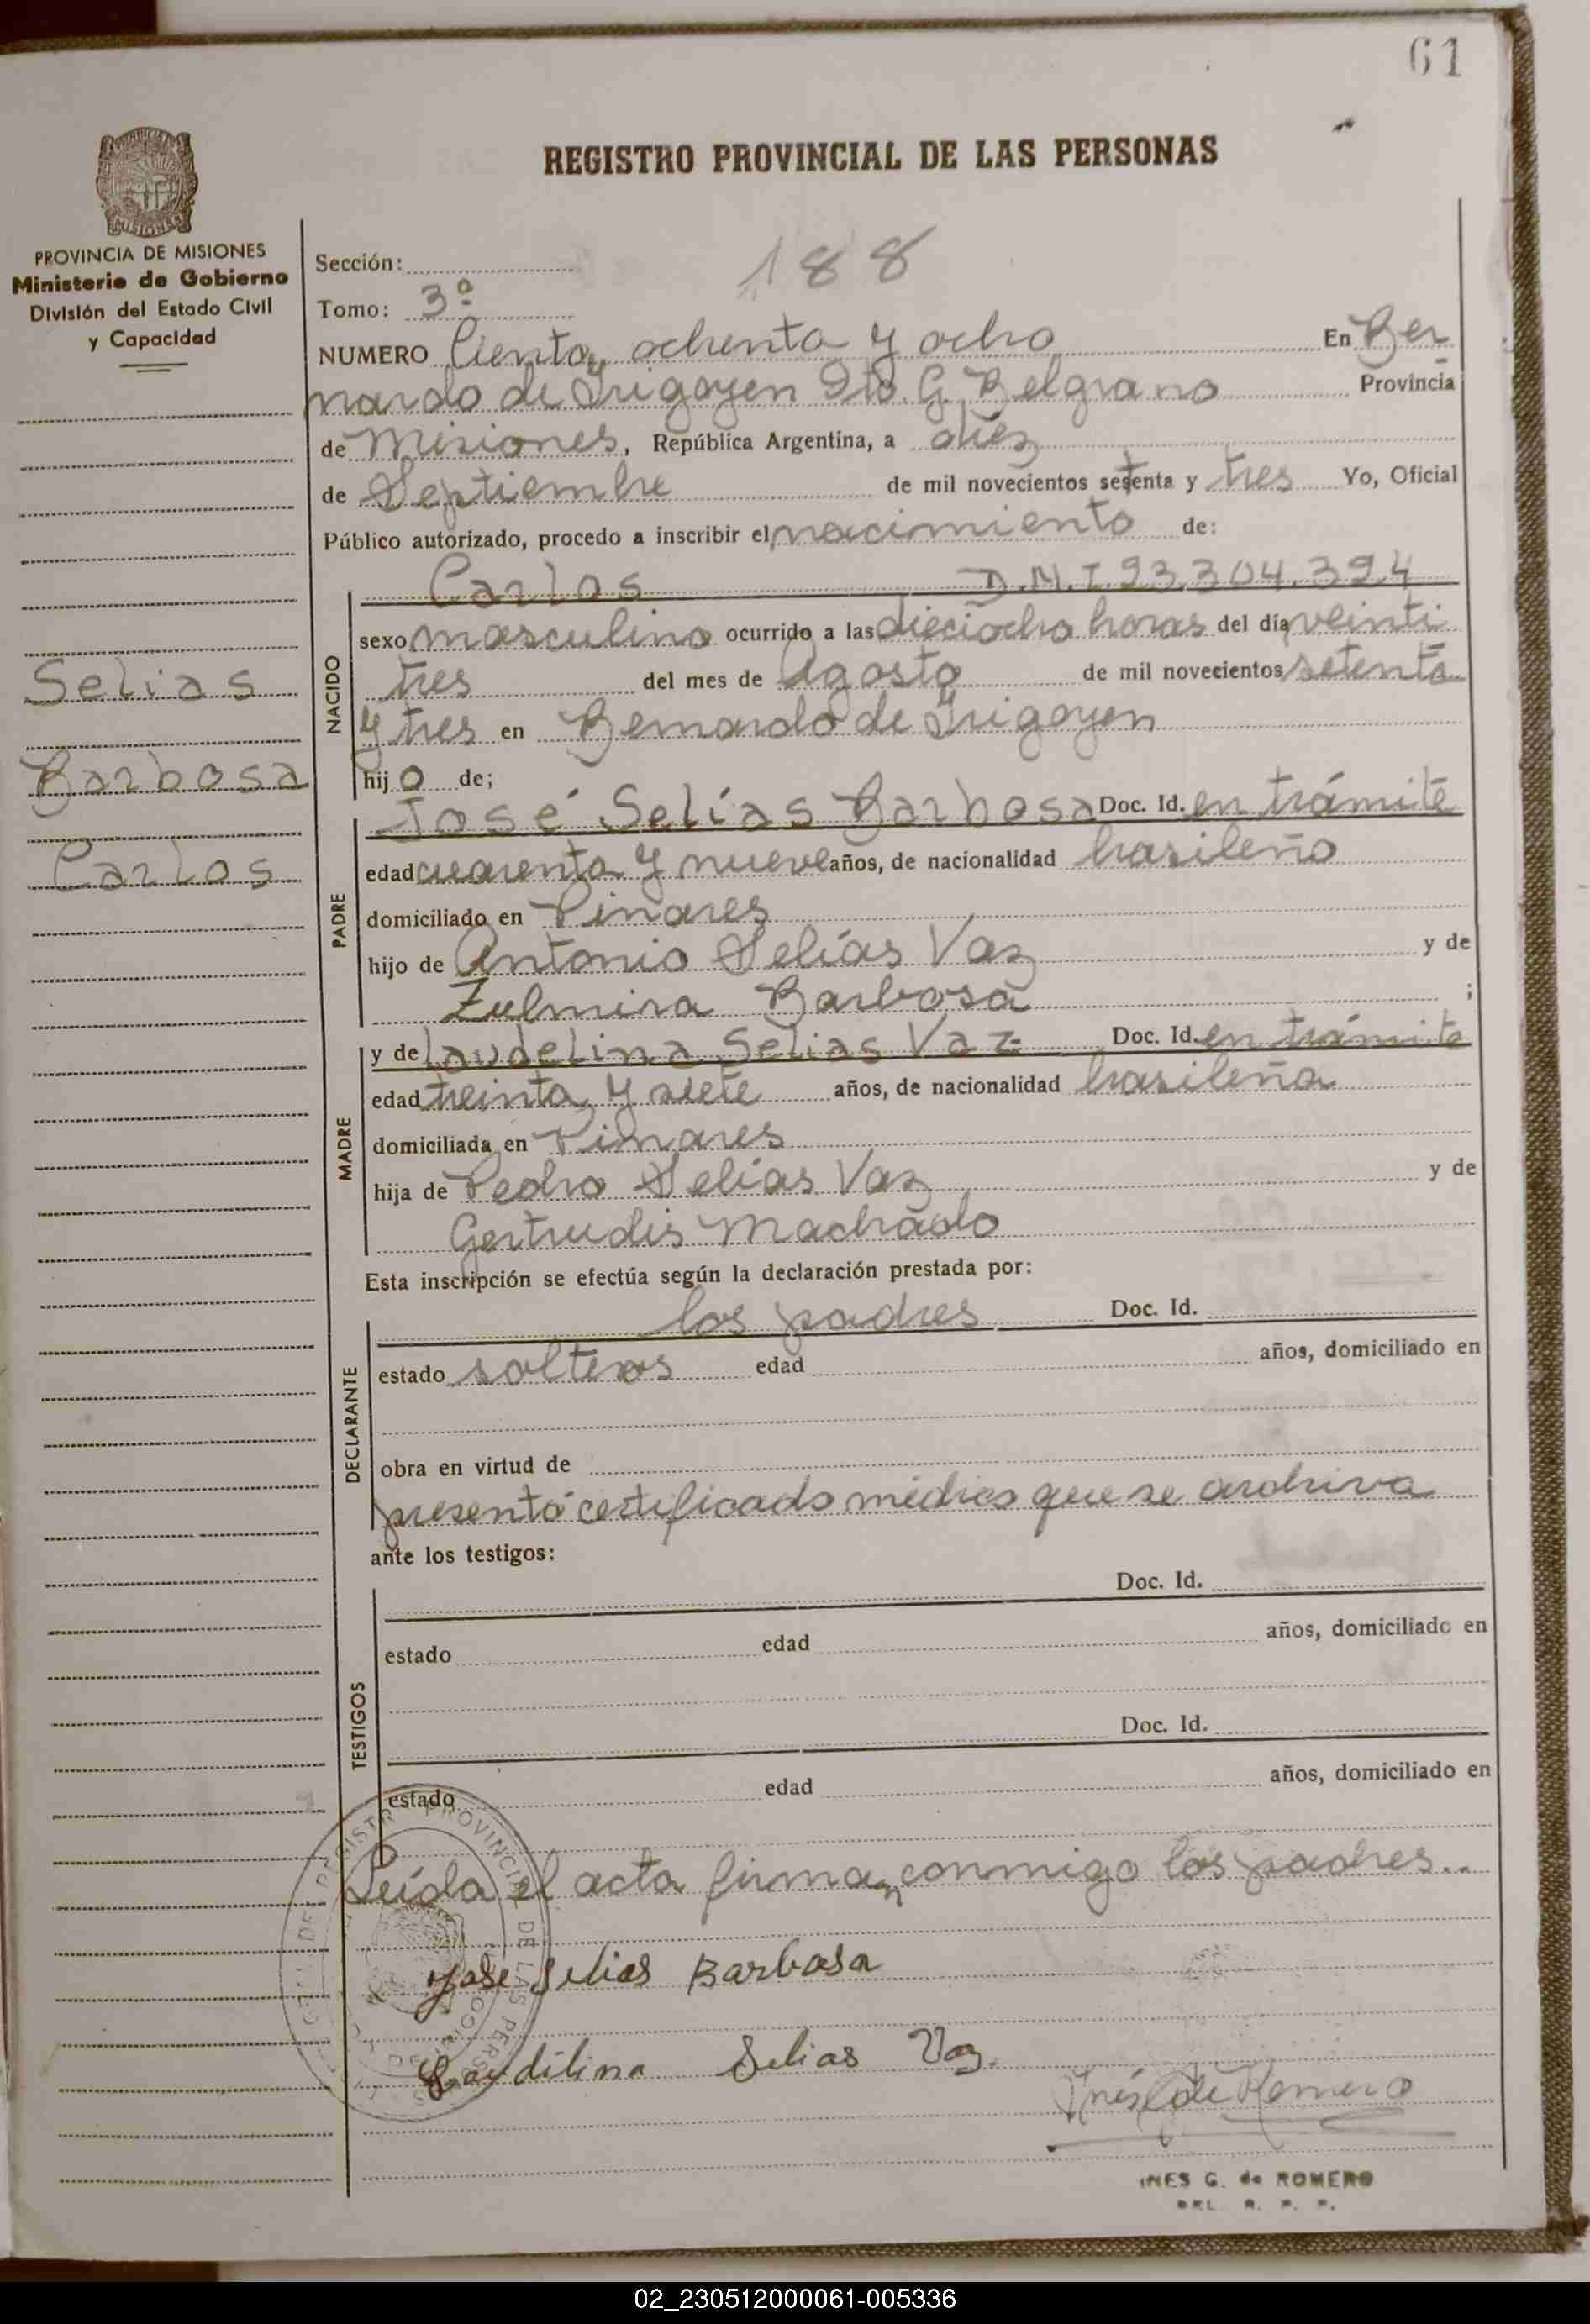 61
REGISTRO PROVINCIAL DE LAS PERSONAS
MISIONES
PROVINCIA DE MISIONES
Ministerio de Gobierno
División del Estado Civil
y Capacidad
Selias
Barbosa
Carlos
Sección:
188
Tomo: 3º
NUMERO Ciento, ochenta y ocho En Ber
nardo de Irigoyen Dto. G. Belgrano Provincia
de Misiones, República Argentina, a diez
de Septiembre de mil novecientos setenta y tres Yo, Oficial
Público autorizado, procedo a inscribir el nacimiento de:
Carlos D.N.I 93.304.394
NACIDO
sexo masculino ocurrido a las dieciocho horas del día veinti
tres del mes de Agosto de mil novecientos setenta
y tres en Bernardo de Irigoyen
hijo de;
PADRE
José Selías Barbosa Doc. Id. en trámite
edad cuarenta y nueve años, de nacionalidad brasileño
domiciliado en Pinares
hijo de Antonio Selías Vaz y de
Zulmira Barbosa ;
MADRE
y de Laudelina Selias Vaz Doc. Id. en trámite
edad treinta y siete años, de nacionalidad brasileña
domiciliada en Pinares
hija de Pedro Selías Vaz y de
Gertrudis Machado
Esta inscripción se efectúa según la declaración prestada por:
DECLARANTE
los padres Doc. Id.
estado solteros edad años, domiciliado en
obra en virtud de
presentó certificado médico que se archiva
ante los testigos:
TESTIGOS
Doc. Id.
estado edad años, domiciliado en
Doc. Id.
estado edad años, domiciliado en
Leída el acta firman conmigo los padres..
Jose Selias Barbosa
Laudilina Selias Vaz.
Inés G de Romero
INES G. de ROMERO
DEL. R. P. P.
02_230512000061-005336